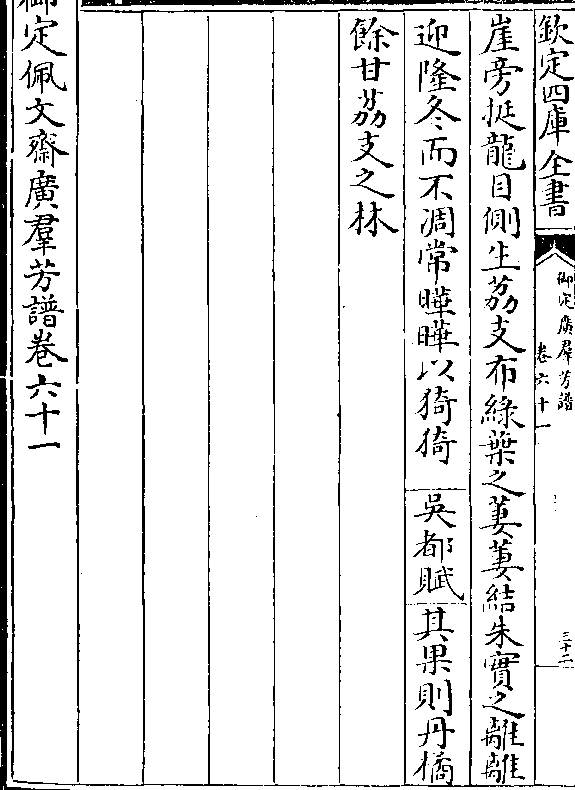 欽定四庫全書
御定廣羣芳譜
卷六十一
三十二
崖旁挺龍目側生荔支布綠葉之萋萋結朱實之離離
迎隆冬而不凋常曄曄以猗猗 吳都賦 其果則丹橘
餘甘荔支之林
御定佩文齋廣羣芳譜卷六十一